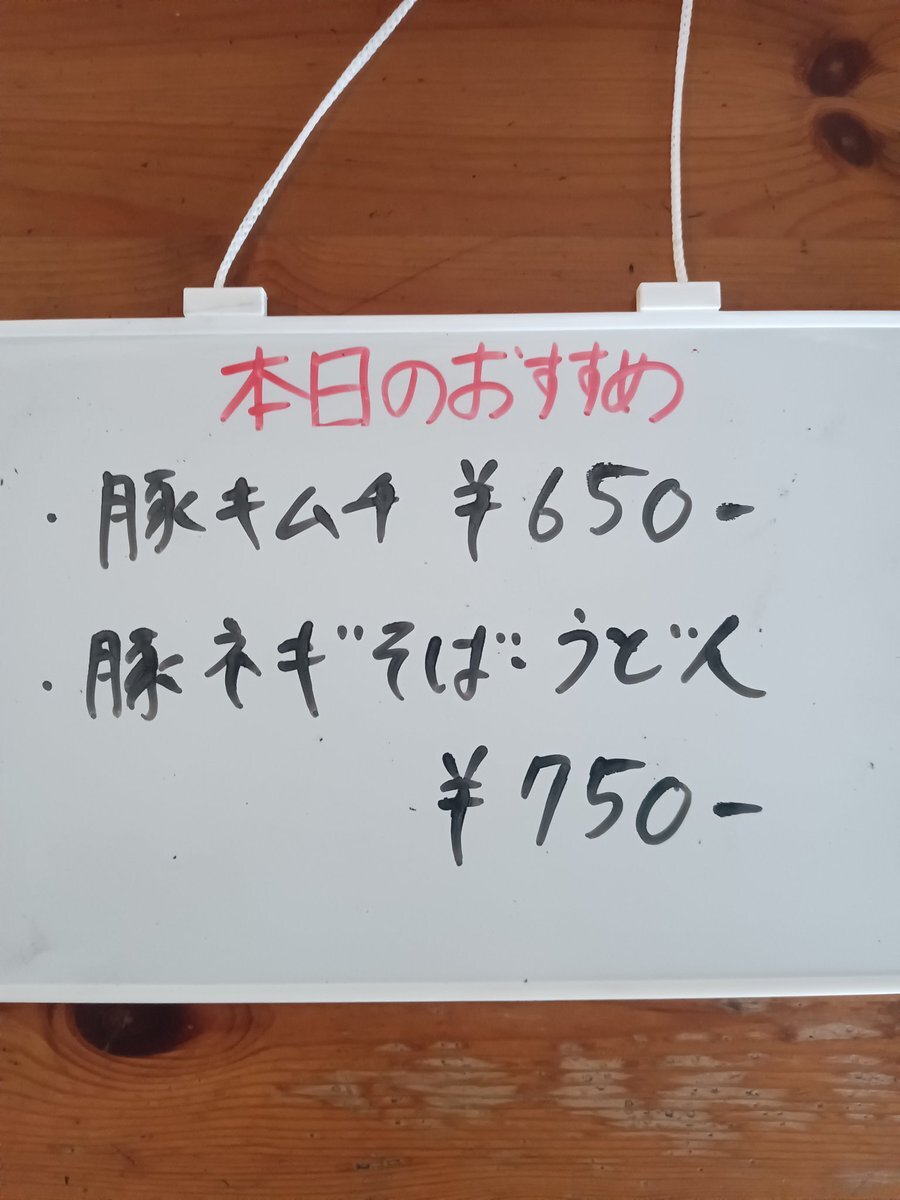 本日のおすすめ
・豚キムチ ¥650-
・豚ネギそば・うどん
¥750-